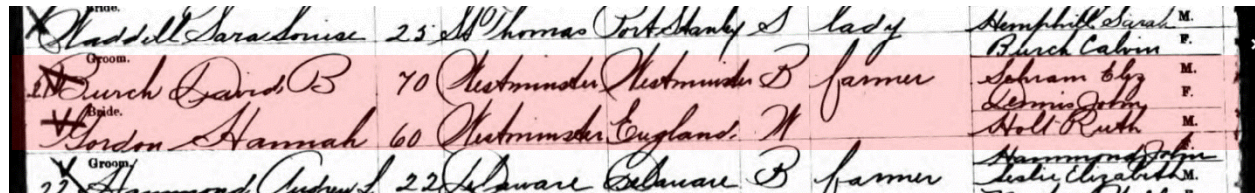 Bride.
Waddell Sara Louise 25 St Thomas Port Stanley S lady Hemphill Sarah M.
Groom. Burch Calvin F.
21 Burch David B 70 Westminster Westminster B farmer Schram Eliz M.
Bride. Dennis John F.
Gordon Hannah 60 Westminster England. W Holt Ruth M.
Groom. Hammond John
22 Hammond Andrew L 22 Delaware Delaware B farmer Leslie Elizabeth M.